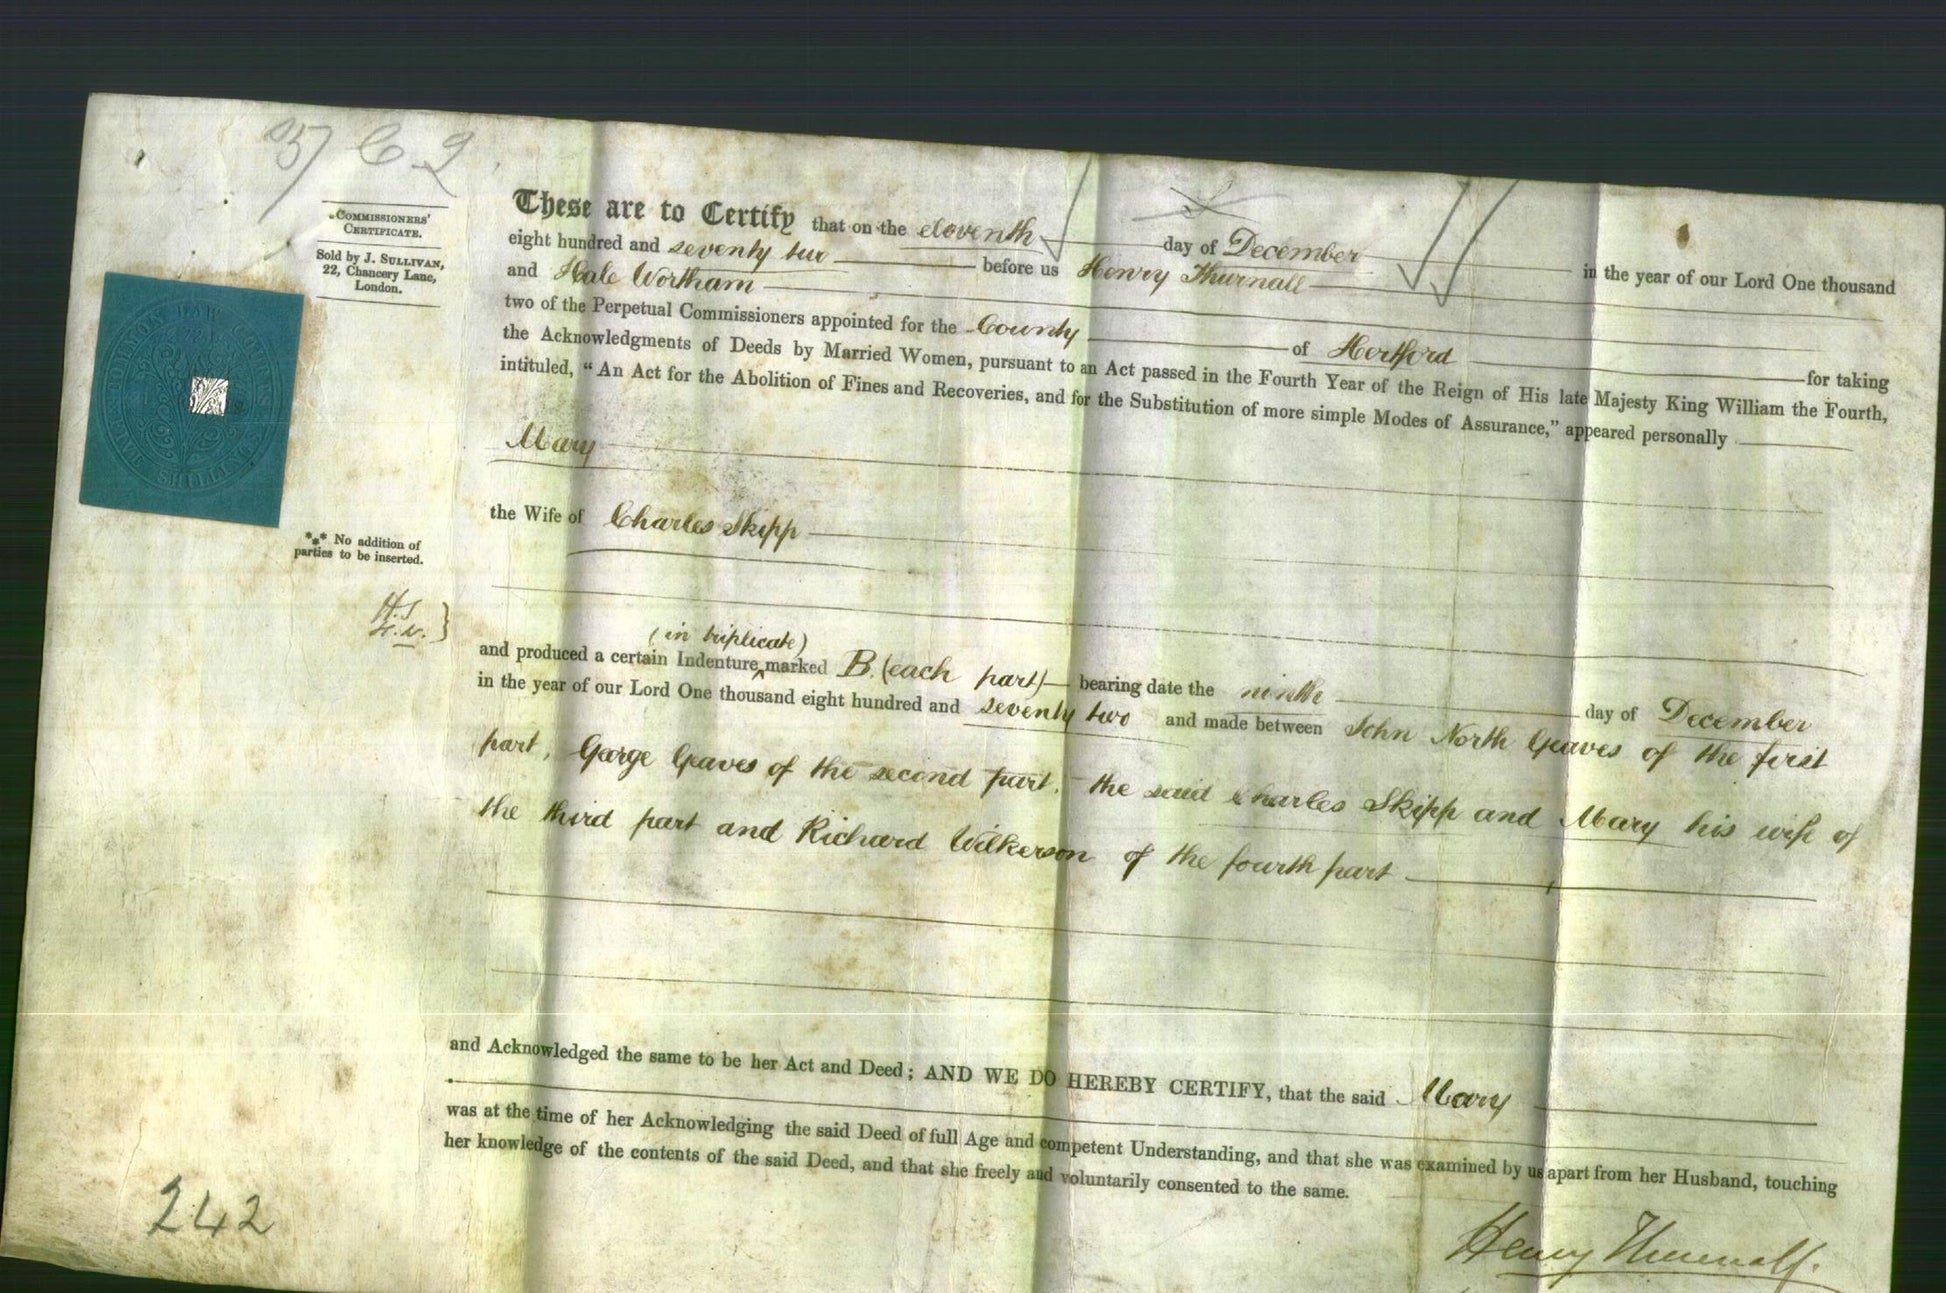 C 2
COMMISSIONERS'
CERTIFICATE.
Sold by J. SULLIVAN,
22, Chancery Lane,
London.
COMMON LAW COURTS
FIVE SHILLINGS
*** No addition of
parties to be inserted.
H.T.
H.W. }
242
These are to Certify that on the eleventh day of December in the year of our Lord One thousand
eight hundred and seventy two before us Henry Thurnall
and Hale Wortham
two of the Perpetual Commissioners appointed for the County of Hertford for taking
the Acknowledgments of Deeds by Married Women, pursuant to an Act passed in the Fourth Year of the Reign of His late Majesty King William the Fourth,
intituled, "An Act for the Abolition of Fines and Recoveries, and for the Substitution of more simple Modes of Assurance," appeared personally
Mary
the Wife of Charles Skipp
(in triplicate)
and produced a certain Indenture ^ marked B. (each part) bearing date the ninth day of December
in the year of our Lord One thousand eight hundred and seventy two and made between John North Greaves of the first
part, George Greaves of the second part, the said Charles Skipp and Mary his wife of
the third part and Richard Wilkerson of the fourth part
and Acknowledged the same to be her Act and Deed; AND WE DO HEREBY CERTIFY, that the said Mary
was at the time of her Acknowledging the said Deed of full Age and competent Understanding, and that she was examined by us apart from her Husband, touching
her knowledge of the contents of the said Deed, and that she freely and voluntarily consented to the same.
Henry Thurnall.